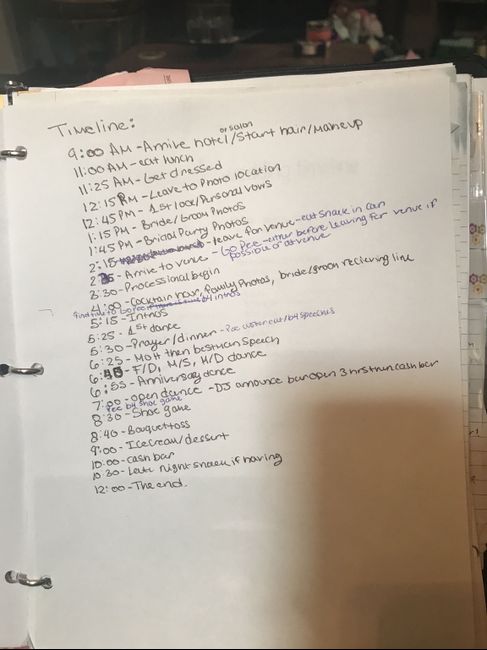 Timeline:
or salon
9:00 AM - Arrive hotel/Start hair/Makeup
11:00 AM - eat lunch
11:25 AM - Get dressed
12:15 PM - Leave to Photo location
12:45 PM - 1st look/Personal vows
1:15 PM - Bride/Groom Photos
1:45 PM - Bridal Party Photos
2:15 - leave for venue - eat snack in car
- Arrive to venue - Go Pee - either before leaving for venue if
possible or at venue
3:30 - Processional begin
4:00 - Cocktail hour, family Photos, bride/groom recieving line
find time to Go Pee by intros
5:15 - Intros
5:25 - 1st dance
5:30 - Prayer/dinner - Pee after eat/by speeches
6:25 - MOH then bestman speech
6:45 - F/D, M/S, M/D dance
6:55 - Anniversary dance
7:00 - open dance - DJ announce bar open 3 hrs then cash bar
Pee by shoe game
8:30 - Shoe game
8:40 - Bouquet toss
9:00 - Icecream/dessert
10:00 - cash bar
10:30 - Late night snack if having
12:00 - The end.